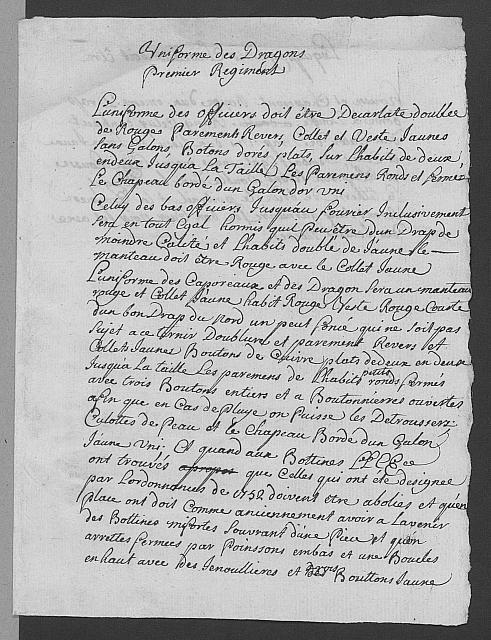 Uniforme des Dragons
premier Regiment
L'uniforme des officiers doit être Decarlate doublee
de Rouge Parements Revers, Collet et Veste Jaunes
sans Galons, Botons dorés plats, sur Lhabits de deux
endeux Jusqua La Taille, Les Paremens Ronds et fermez
Le Chapeau bordé dun Galon dor Vni
Celuy des bas officiers Jusquau fourier Inclusivement
sera en tout Egal hormis quil peu être dun Drap de
moindre Calité et Lhabits doublé de Jaune le
manteau doit être Rouge avec le Collet Jaune
L'uniforme des Caporeaux et des Dragon sera un manteau
rouge et Collet Jaune habit Rouge Veste Rouge Courte
dun bon Drap du nord un peut foncé qui ne soit pas
sujet a ce ternir Doublure et parement Revers et
Collets Jaunes Boutons de Cuivre plats de deux en deux
Jusqua La Taille Les paremens de Lhabits petits ronds fermés
avec trois Boutons entiers et a Boutonnieres ouvertes
afin que en Cas de pluye on Puisse les Detrousser
Culottes de Peau et le Chapeau Bordé dun Galon
Jaune Vni; Et quand aux Bottines
ont trouvés apropos que Celles qui ont eté designée
par Lordonnances de 1752 doivent etre abolies et qu'en
place ont doit Comme anciennement avoir a Lavenir
des Bottines mfortes souvrant d'une Pieu et quon
arrettes fermées par Poinssons embas et une Boucles
enhaut avec des Jenoullieres et Bouttons Jaune